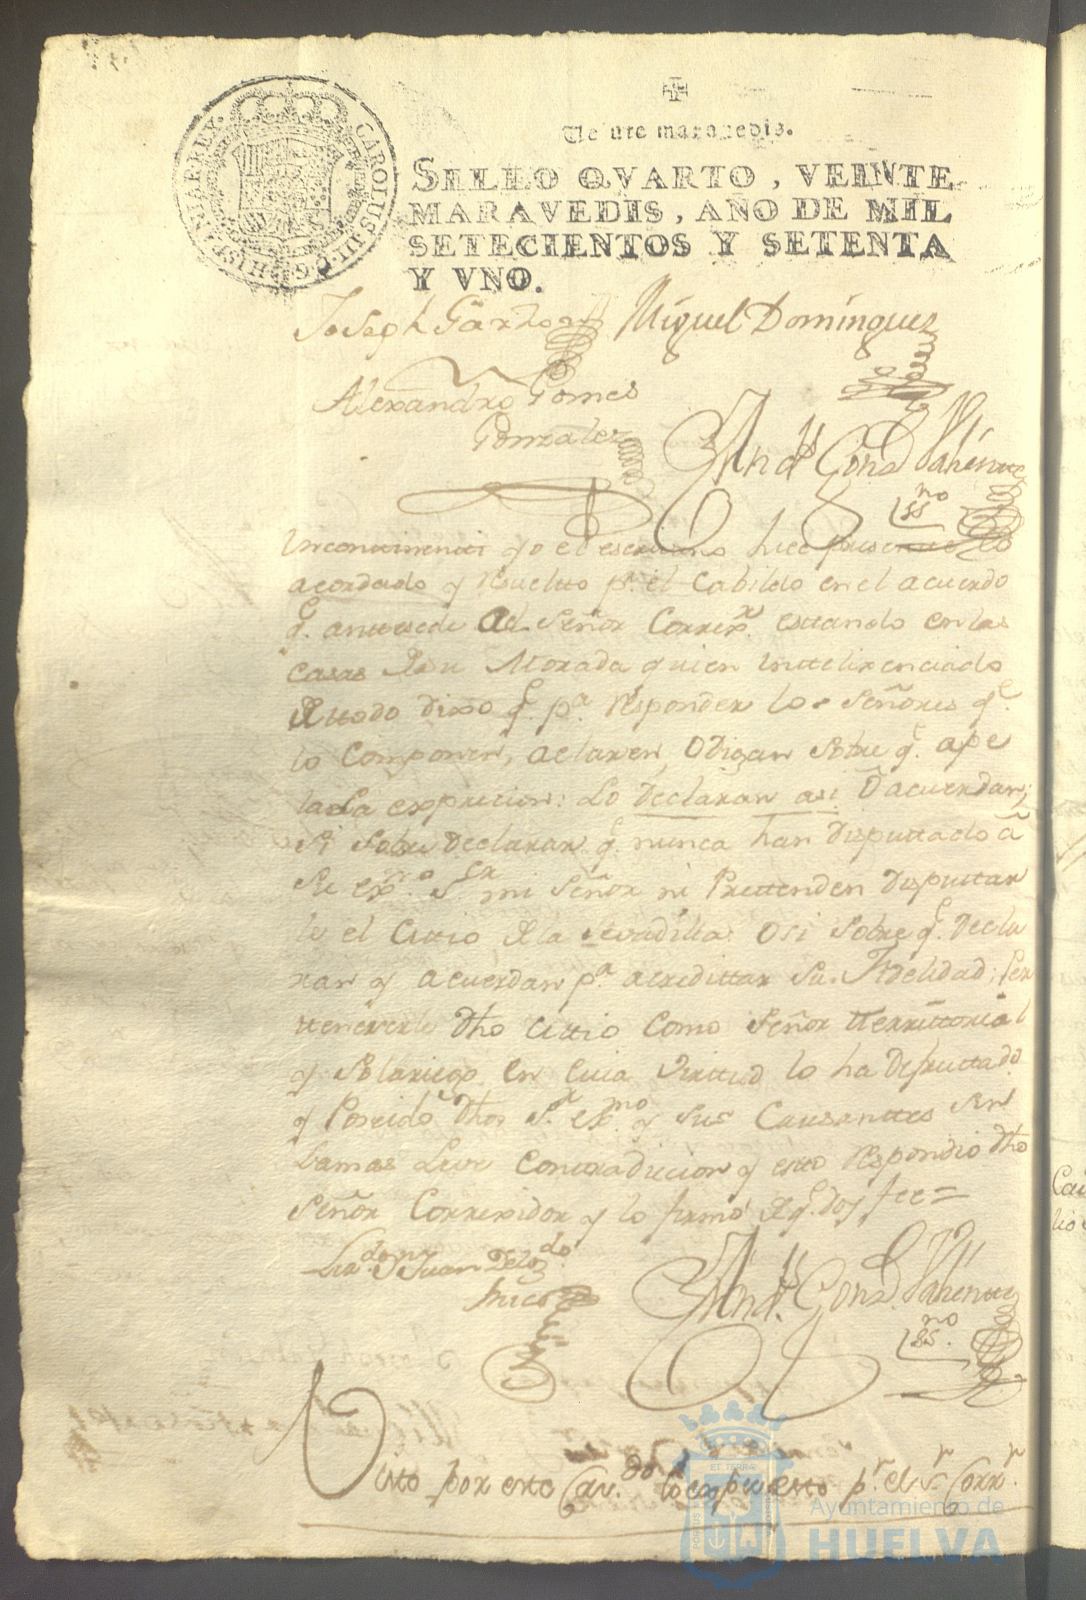 CAROLUS III. D. G. HISPANIAR. REX.
Veinte maravedis.
SELLO QVARTO, VEINTE
MARAVEDIS, AÑO DE MIL
SETECIENTOS Y SETENTA
Y VNO.
Joseph Garzon Miguel Dominguez
Alexandro Gomes
Gonzalez
And.s Gonz.
ss.no
Yncontinenti yo el escribano hice presente lo
acordado y resuelto p.r el Cabildo en el acuerdo
q.e anttesede Al Señor Correx.r estando en las
casas de su Morada quien Ynttelixenciado
de ttodo dixo q.e p.a responder los Señores q.e
lo Componen, aclaren, O digan sobre q.e ape
la la exprecion: Lo Declaran asi O acuerdan;
Si sobre Declarar q.e nunca han Disputtado â
Su ex.ma S.or mi Señor ni Prettenden Disputtar
le el Cittio de la O si sobre q.e Decla
ran y acuerdan p.a acredittar su Fidelidad, Per
tteneserle dho Cittio Como Señor Territtorial
y Solariego en Cuia Virttud lo ha Desfruttado
y Poseido dho S.r ex.mo y sus Causanttes sin
la mas Leve Conttradicion y esto respondió dho
Señor Correxidor y lo firmó de q.e Doy fee=
Liz.do D.n Juan
And.s Gonz.
ss.no
Visto por este Cav.do lo expuesto p.r el S.r Corr.r
ET TERRAE
PORTUS
Ayuntamiento de
HUELVA